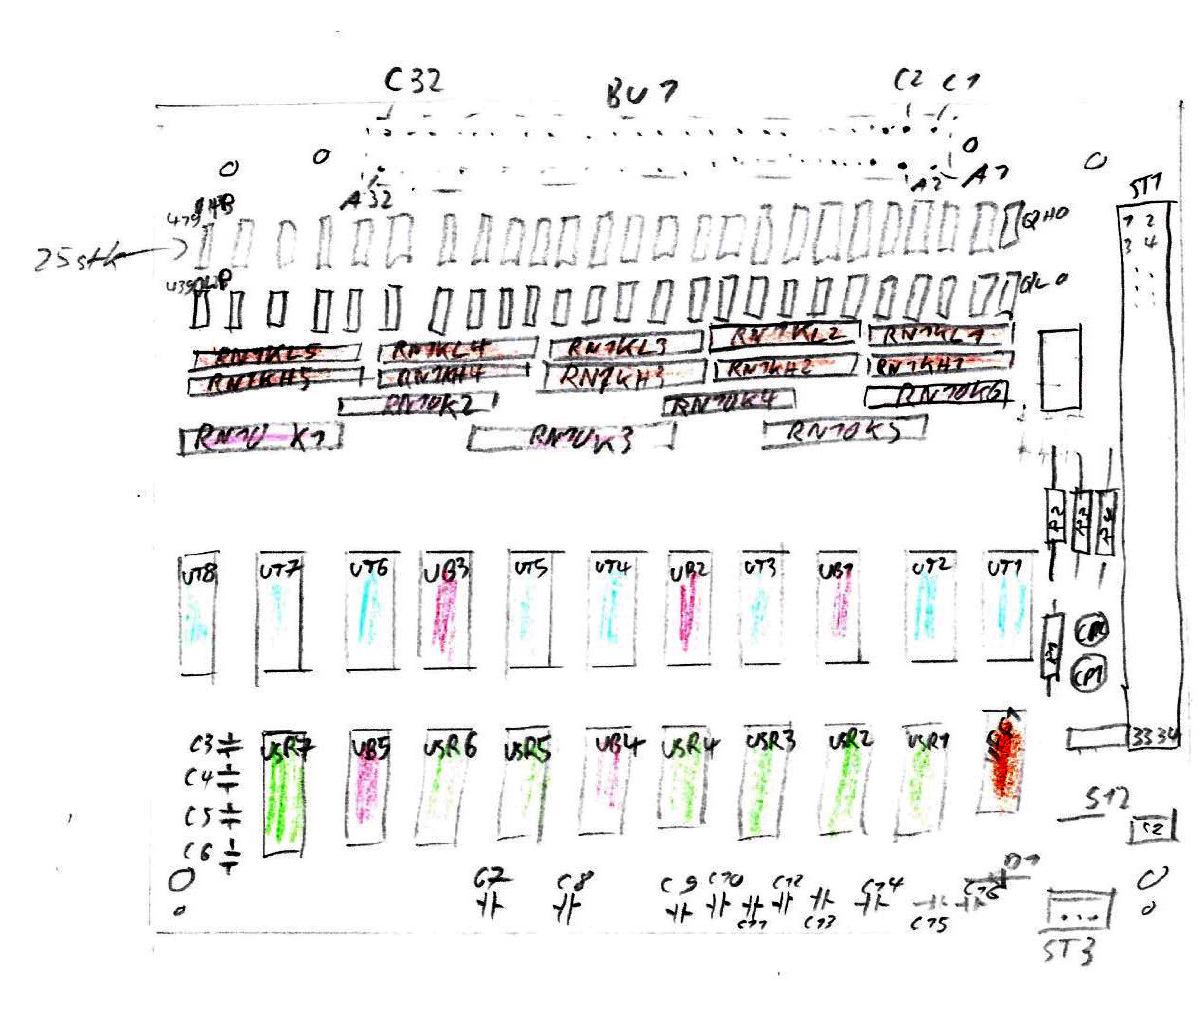 C32 BU1 C2 C1
A32 A2 A1
ST1
QH0
1 2
3 4
25stk
QL0
RN1KL5 RN1KL4 RN1KL3 RN1KL2 RN1KL1
RN1KH5 RN1KH4 RN1KH3 RN1KH2 RN1KH1
RN10K2 RN10K4 RN10K6
RN10 K1 RN10K3 RN10K5
UT8 UT7 UT6 UB3 UT5 UT4 UB2 UT3 UB1 UT2 UT1
CP1
C3 USR7 UB5 USR6 USR5 UB4 USR4 USR3 USR2 USR1
33 34
C4
C5
C6
ST2
C7 C8 C9 C10 C11 C12 C13 C14 C15 C16 D1
ST3